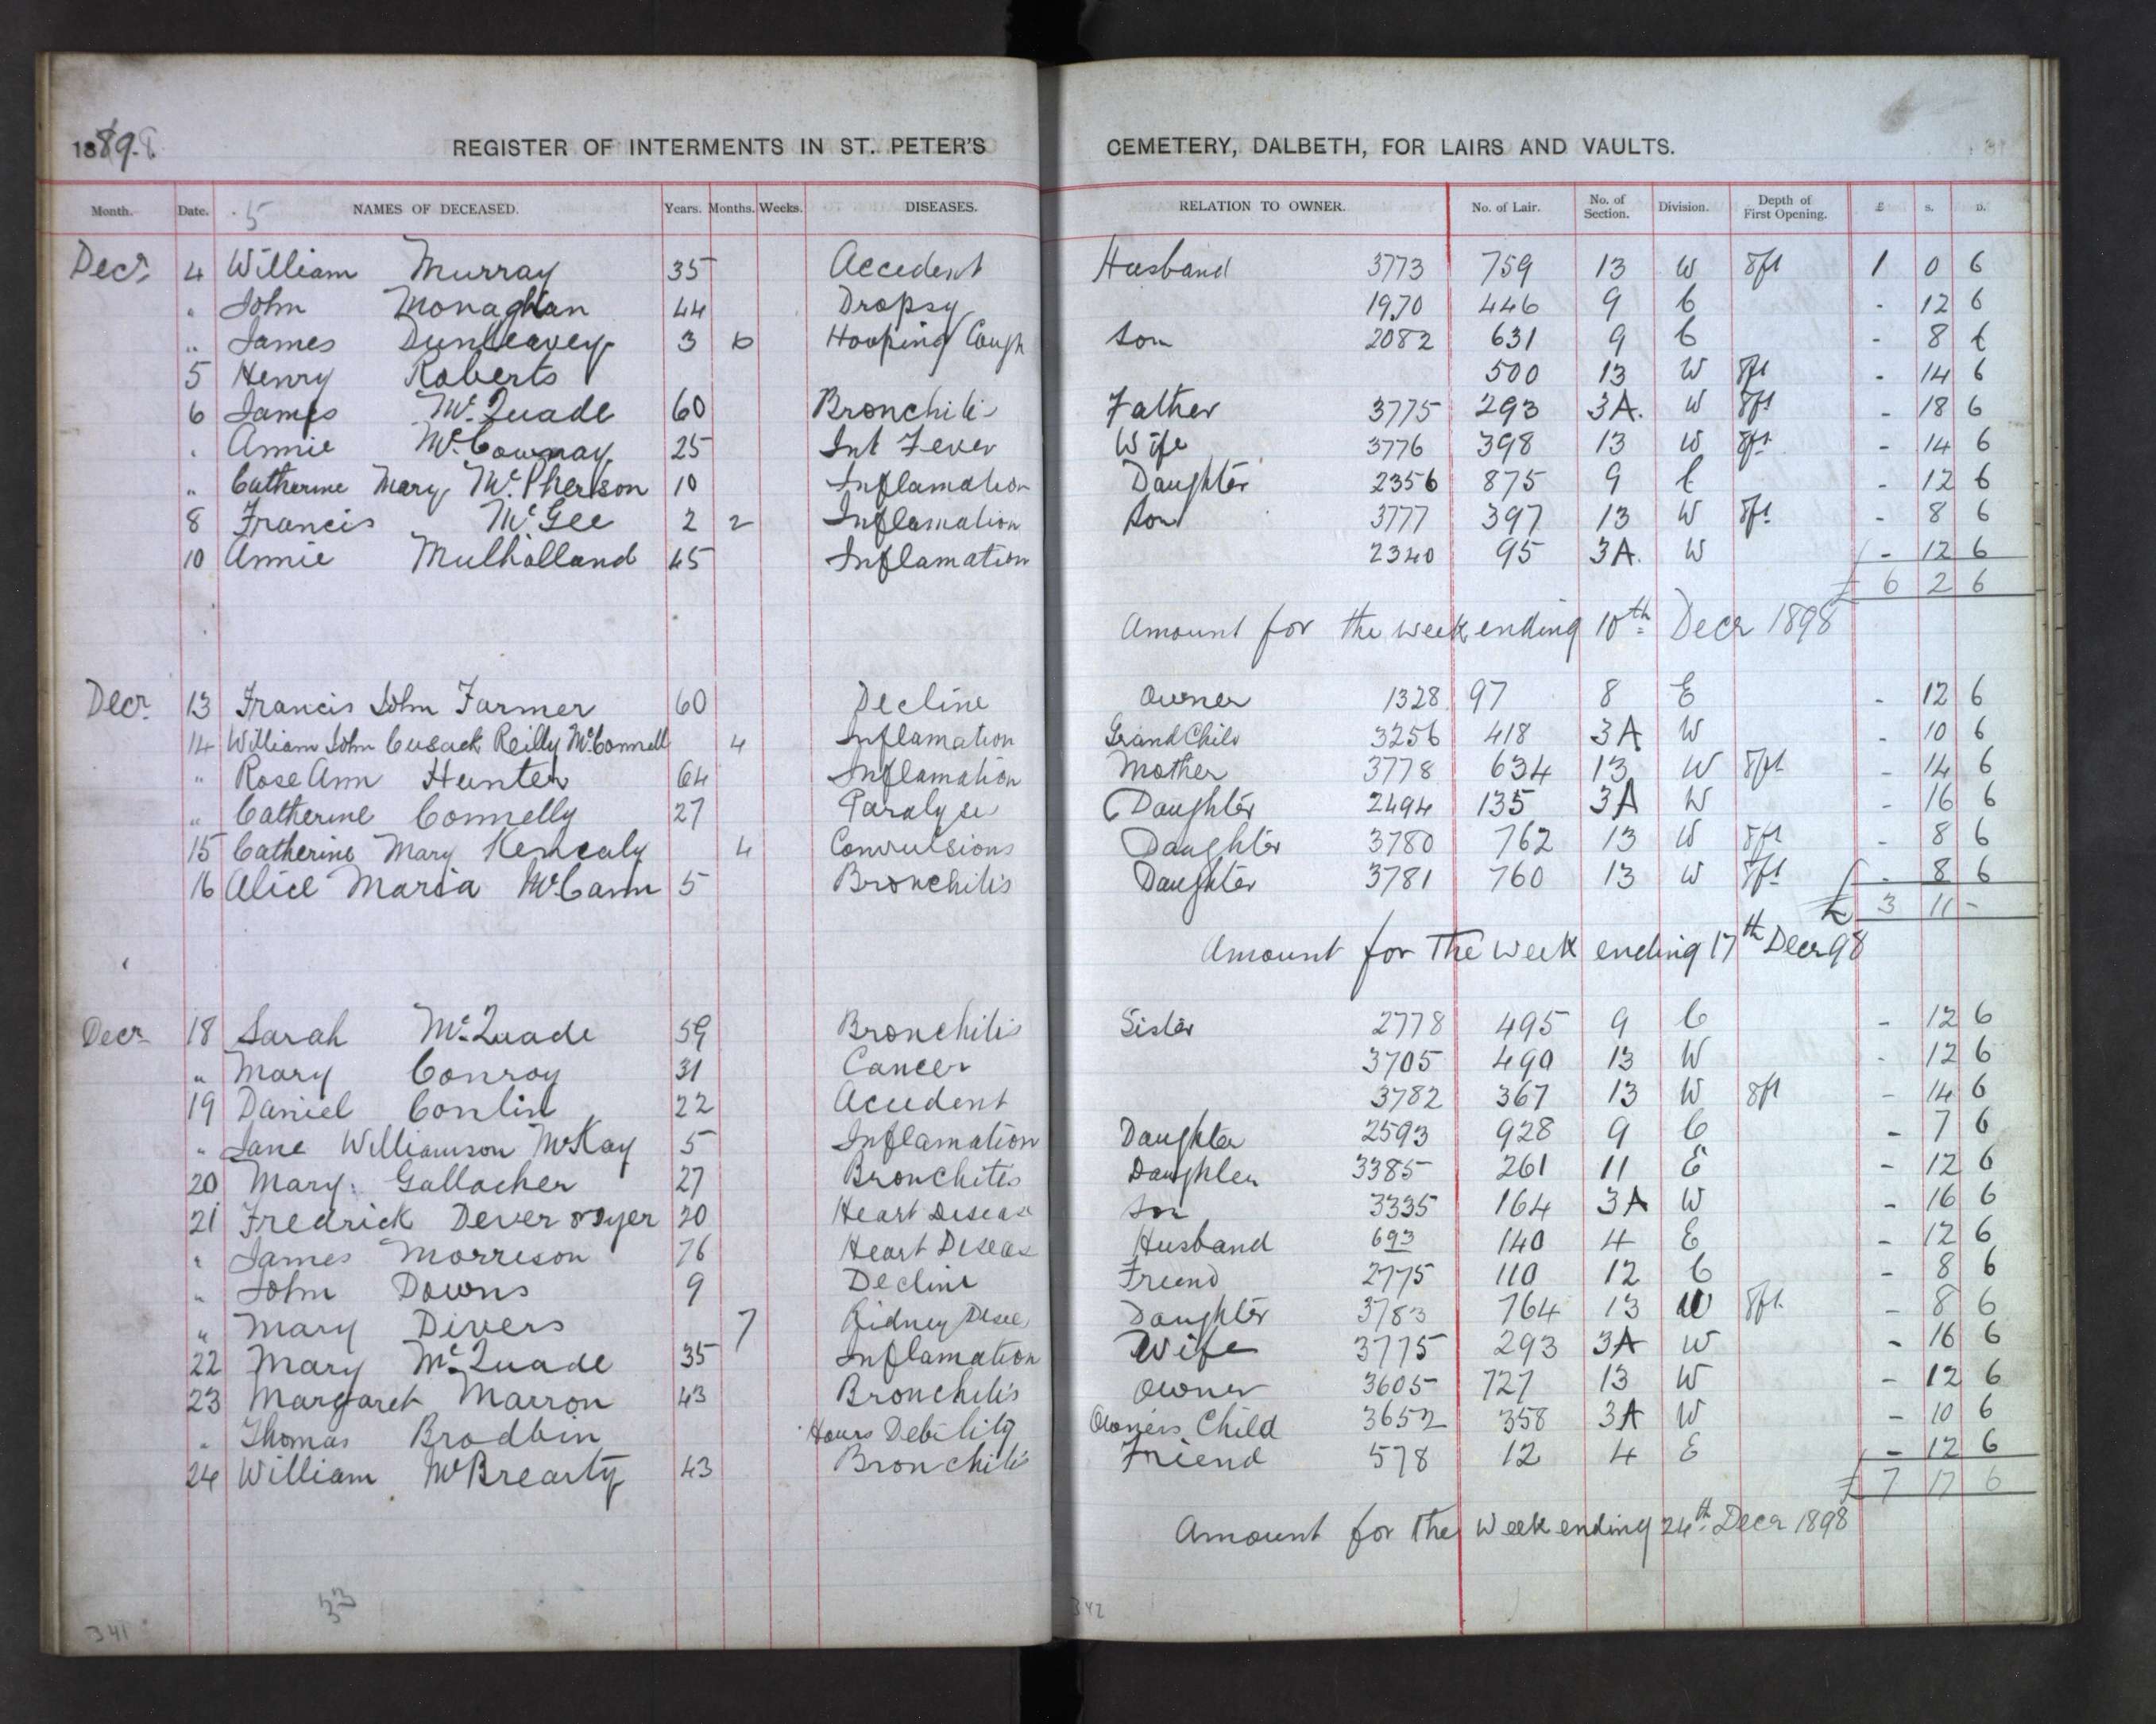 1898.
REGISTER OF INTERMENTS IN ST. PETER'S CEMETERY, DALBETH, FOR LAIRS AND VAULTS.
Month. Date. NAMES OF DECEASED. Years. Months. Weeks. DISEASES. RELATION TO OWNER. No. of Lair. No. of Section. Division. Depth of First Opening. £ s. D.
5
Decr. 4 William Murray 35 Accedent Husband 3773 759 13 W 8ft 1 0 6
" John Monaghan 44 Dropsy 1970 446 9 C - 12 6
" James Dunleavey 3 Hooping Cough Son 2082 631 9 C - 8 6
5 Henry Roberts 500 13 W 8ft - 14 6
6 James McQuade 60 Bronchitis Father 3775 293 3A. W 8ft - 18 6
" Annie 25 Int Fever Wife 3776 398 13 W 8ft - 14 6
" Catherine Mary McPherson 10 Inflamation Daughter 2356 875 9 C - 12 6
8 Francis McGee 2 2 Inflamation Son 3777 397 13 W 8ft - 8 6
10 Annie Mulholland 45 Inflamation 2340 95 3A. W - 12 6
£ 6 2 6
Amount for the week ending 10th Decr 1898
Decr. 13 Francis John Farmer 60 Decline Owner 1328 97 8 E - 12 6
14 William John Cusack Reilly McConnell 4 Inflamation GrandChild 3256 418 3A W - 10 6
" Rose Ann Hunter 64 Inflamation Mother 3778 634 13 W 8ft - 14 6
" Catherine Connelly 27 Paralyse Daughter 2494 135 3A W - 16 6
15 Catherine Mary Kenealy 4 Convulsions Daughter 3780 762 13 W 8ft - 8 6
16 Alice Maria McCann 5 Bronchitis Daughter 3781 760 13 W 8ft - 8 6
£ 3 11 -
Amount for The week ending 17th Decr 98
Decr 18 Sarah McQuade 59 Bronchitis Sister 2778 495 9 C - 12 6
" Mary Conroy 31 Cancer 3705 490 13 W - 12 6
19 Daniel Conlin 22 Accedent 3782 367 13 W 8ft - 14 6
" Jane Williamson McKay 5 Inflamation Daughter 2593 928 9 C - 7 6
20 Mary Gallacher 27 Bronchitis Daughter 3385 261 11 E - 12 6
21 Fredrick Dever or Dyer 20 Heart Diseas Son 3335 164 3A W - 16 6
" James Morreson 76 Heart Diseas Husband 693 140 4 E - 12 6
" John Downs 9 Decline Freind 2775 110 12 C - 8 6
" Mary Divers 7 Kidney Daughter 3783 764 13 W 8ft - 8 6
22 Mary McQuade 35 Inflamation Wife 3775 293 3A W - 16 6
23 Margaret Marron 43 Bronchitis Owner 3605 727 13 W - 12 6
" Thomas Brodbin Hours Debility Owners Child 3652 358 3A W - 10 6
24 William McBrearty 43 Bronchitis Friend 578 12 4 E - 12 6
£ 7 17 6
Amount for the week ending 24th Decr 1898
33
341
342